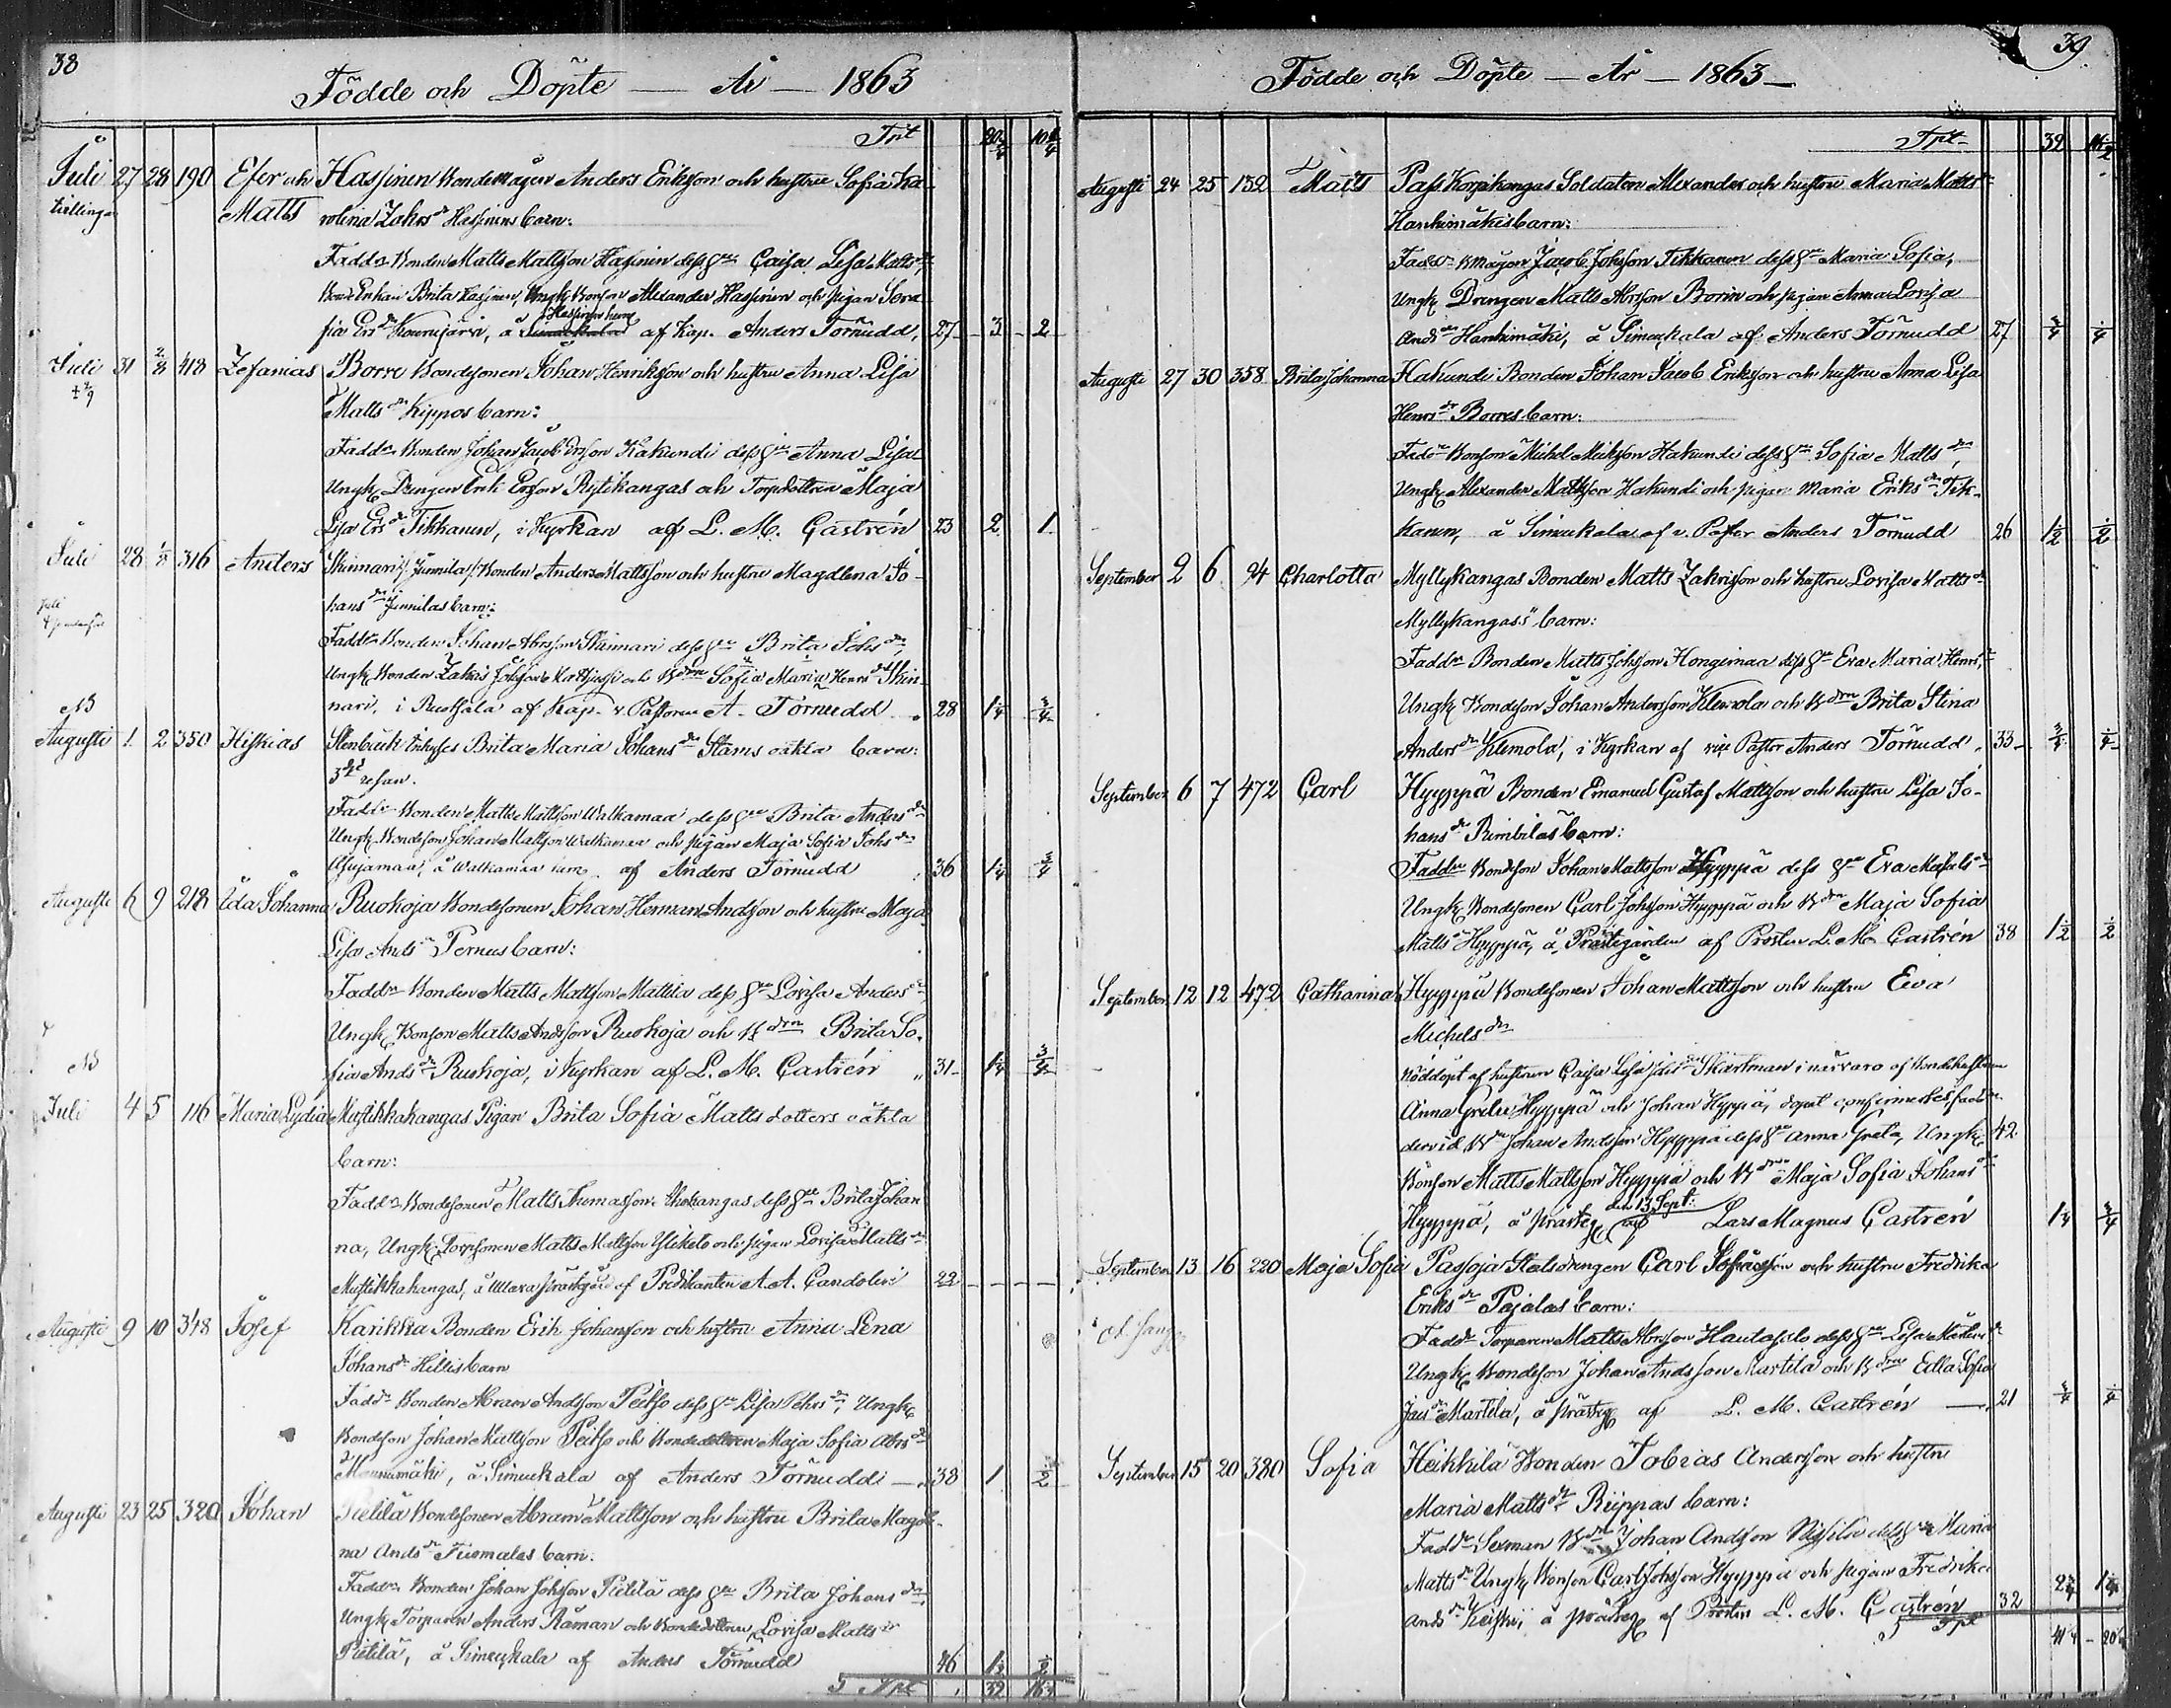 38
Födde och Döpte — År — 1863
Tpt 20 3/4 10 1/4
Juli 27 28 190 Efer och Hassinen Bondemågen Anders Eriksson och hustru Sofia Ka-
tvillingar Matts rolina Zakrs dr Hassinens barn:
Fadd:r Bonden Matts Mattsson Hassinen dess hu Caisa Lisa Matts dr,
Brita Hassinen, Ungk. Bonson Alexander Hassinen och pigan So-
fia Ers dr Kounujärvi, å Hassinen hem af Kap. Anders Törnudd, 27 3 2
Juli 31 2/8 418 Zefanias Borre Bondesonen Johan Henriksson och hustru Anna Lisa
Matts dr Kippos barn:
Fadd:r Bonden Johan Jacob Ersson Hakundi dess hu Anna Lisa
Ungk. Drengen Erik Ersson Rytikangas och Torpdottren Maja
Lisa Ers dr Tikkanen, i Kyrkan af L. M. Castrén 23 2 1
Juli 28 1/8 316 Anders Skinnari /: Junnila :/ Bonden Anders Mattsson och hustru Magdlena Jo-
hans dr Junnilas barn:
Fadd:r Bonden Johan Abrsson Skinnari dess hu Brita Johs dr,
Ungk. Bonden Zakris Johsson och B drn Sofia Maria Henrs dr Skin-
nari, i Ruotsala af Kap. v. Pastoren A. Törnudd 28 1 1/4 3/4
NB
Augusti 1 2 350 Hiskias Stenbäck Enhyses Brita Maria Johans dr Stams oäkta barn:
3dje resan.
Fadd:r Bonden Matts Mattsson Walkamaa dess hu Brita Anders dr
Ungk. Bondeson Johan Mattsson Walkamaa och pigan Maja Sofia Johs dr
å Walkamaa hem af Anders Törnudd 36 1 1/4 3/4
Augusti 6 9 218 Ida Johanna Ruokoja Bondesonen Johan Herman Andsson och hustru Maja
Lisa Ands dr Pernus barn:
Fadd:r Bonden Matts Mattsson Mattila dess hu Lovisa Anders dr,
Ungk. Bonson Matts Andsson Ruokoja och B drn Brita So-
fia Ands dr Ruokoja, i Kyrkan af L. M. Castrén 31 1 1/4 3/4
NB
Juli 4 5 116 Maria Lydia Mustikkakangas Pigan Brita Sofia Matts dotters oäkta
barn:
Fadd:r Bondesonen Matts Thomasson dess hu Brita Johan-
na, Ungk. Torpsonen Matts Mattsson Yliketo och pigan Lovisa Matts dr
Mustikkakangas, å prästgård af Predikanten A. A. Candolin 22
Augusti 9 10 348 Josef Karikka Bonden Erik Johansson och hustru Anna Lena
Johans dr Hillis barn
Fadd:r Bonden Abram Andsson Peitso dess hu Lisa Pehrs dr, Ungk.
Bondeson Johan Mattsson Peitso och Bondedottren Maja Sofia Abrs dr
Mounumäki, å Simeckala af Anders Törnudd 38 1 1/2
Augusti 23 25 320 Johan Pietilä Bondesonen Abram Mattsson och hustru Brita Magdle-
na Ands dr Tuomalas barn:
Fadd:r Bonden Johan Johsson Pietilä dess hu Brita Johans dr,
Ungk. Torparen Anders Råman och Bondedottren Lovisa Matts dr
Pietilä, å Simeckala af Anders Törnudd 46 1 1/2 1/2
Tpt 32
39
Födde och Döpte — År — 1863 —
Tpt 32
Augusti 24 25 132 Matts Pass Korpikangas Soldaten Alexander och hustru Maria Matts dr
Hankimäkis barn:
Fadd:r B mågen Jacob Johsson Tikkanen dess hu Maria Sofia,
Ungk. Drengen Matts Abrsson Borin och pigan Anna Lovisa
Ands dr Hankimäki, å Simeckala af Anders Törnudd 27 3/4 1/4
Augusti 27 30 358 Brita Johanna Hakundi Bonden Johan Jacob Eriksson och hustru Anna Lisa
Henrs dr Borres barn:
Fadd:r Bonson Michel Mickson Hakundi dess hu Sofia Matts dr,
Ungk. Alexander Mattsson Hakundi och pigan Maria Eriks dr Tik-
kanen, å Simeckala af v. Pastor Anders Törnudd 26 1 1/2 1/2
September 2 6 94 Charlotta Myllykangas Bonden Matts Zakrisson och hustru Lovisa Matts dr
Myllykangas's barn:
Fadd:r Bonden Matts Johsson Hongimaa dess hu Eva Maria Henrs dr,
Ungk. Bondeson Johan Andersson Klemola och B drn Brita Stina
Anders dr Klemola, i Kyrkan af vice Pastor Anders Törnudd 33 3/4 1/4
September 6 7 472 Carl Hyyppä Bonden Emanuel Gustaf Mattsson och hustru Lisa Jo-
hans dr Rimbiläs barn:
Fadd:r Bondeson Johan Mattsson Hyyppä dess hu Eva Michels dr
Ungk. Bondesonen Carl Johsson Hyyppä och B drn Maja Sofia
Matts dr Hyyppä, å Prästgården af Prosten L. M. Castrén 38 1 1/2 1/2
September 12 12 472 Catharina Hyyppä Bondesonen Johan Mattsson och hustru Eva
Michels dr
Nöddöpt af hustrun Caisa Lisa Skartman i närvaro af Bondehustrun
Anna Greta Hyyppä och Johan Hyyppä, dopet confirmerades,
dervid B dn Johan Andsson Hyyppä dess hu Anna Greta, Ungk. 42
Bonson Matts Mattsson Hyyppä och B drn Maja Sofia Johans dr
Hyyppä, å prästg. den 13 Sept: af Lars Magnus Castrén 1 1/4 3/4
September 13 16 220 Maja Sofia Pasoja Stalsdrengen Carl och hustru Fredrika
Eriks dr Pajalas barn:
Fadd:r Torparen Matts Abrsson Hautasalo dess hu Lisa
Ungk. Bondeson Johan Andsson Martila och B drn Edla Sofia
Jacs dr Martila, å prästg. af L. M. Castrén 21 3/4 1/4
September 15 20 380 Sofia Heikkilä Bonden Tobias Andersson och hustru
Maria Matts dr Riippas barn:
Fadd:r Sexman B dn Johan Andsson dess hu Maria
Matts dr Ungk. Bonson Carl Johsson Hyyppä och pigan Fredrika
Ands dr å prästg. af Prosten L. M. Castrén 32 2 1/4 1 1/4
Tpt